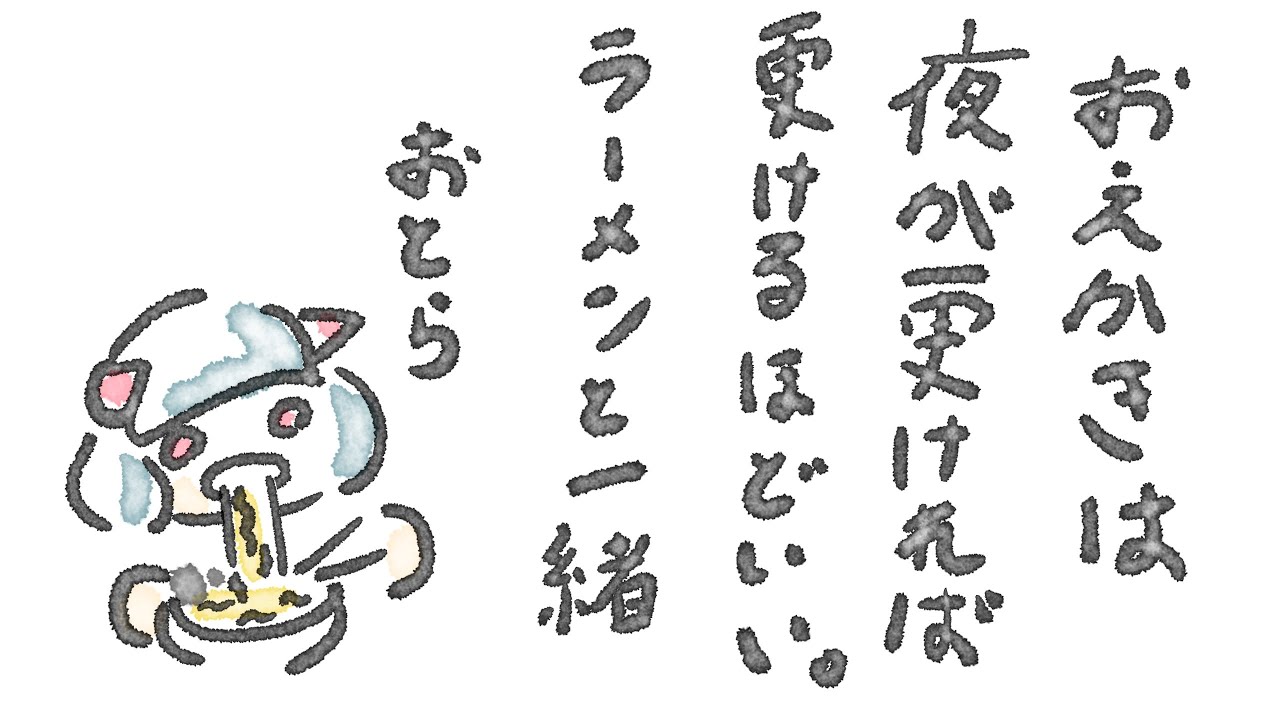 おえかきは
夜が更ければ
更けるほどいい。
ラーメンと一緒
おとら